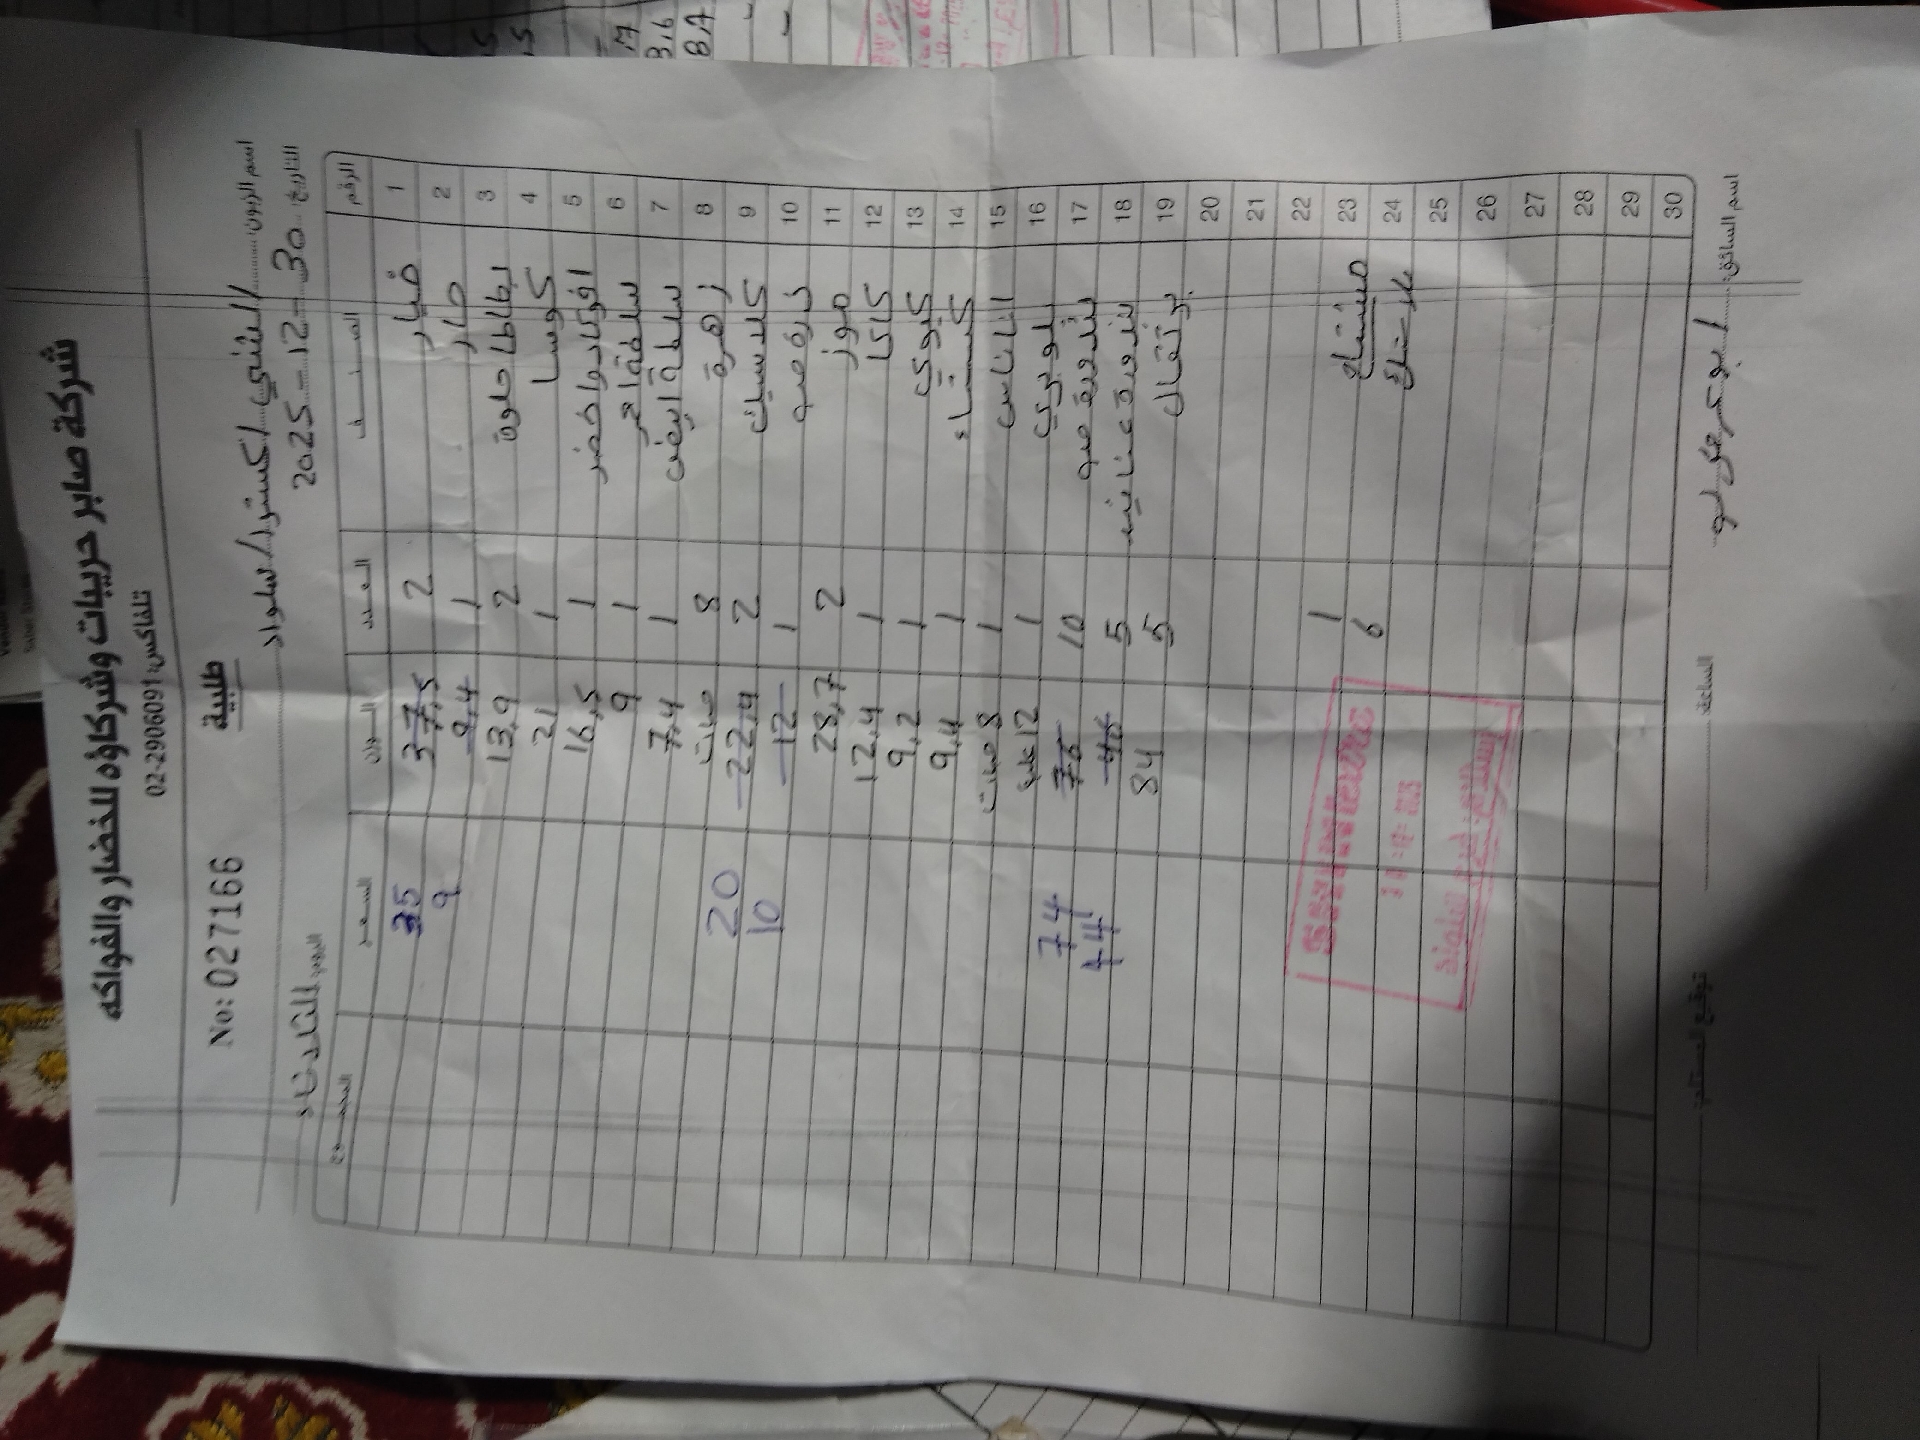 شركة صابر حريبات وشركاؤه للخضار والفواكه
تلفاكس: 02-2906091
طلبية
No: 027166
اسم الزبون: الشني اكسترا / سلواد
التاريخ: 30-12-2025 اليوم: الثلاثاء
الرقم الصنف العدد الوزن السعر المجموع
1 خيار 2 37,5 35
2 حار 1 9,4 9
3 بطاطا حلوة 2 13,9
4 كوسا 1 21
5 افوكادو اخضر 1 16,5
6 سلطة احمر 1 9
7 سلطة ابيض 1 7,4
8 زهرة 8 حبات
9 كلاسيك 2 22,4 20
10 1 12 10
11 موز 2 28,7
12 كاكا 1 12,4
13 كيوي 1 9,2
14 1 9,4
15 اناناس 1 8 حبات
16 1 12 علبة
17 بندورة 10 76 74
18 بندورة عناقيد 5 46 44
19 برتقال 5 84
20
21
22
23 مشتاح 1
24 6
25
26
27
28
29
30
اسم السائق: ابو الساعة: توقيع المستلم: